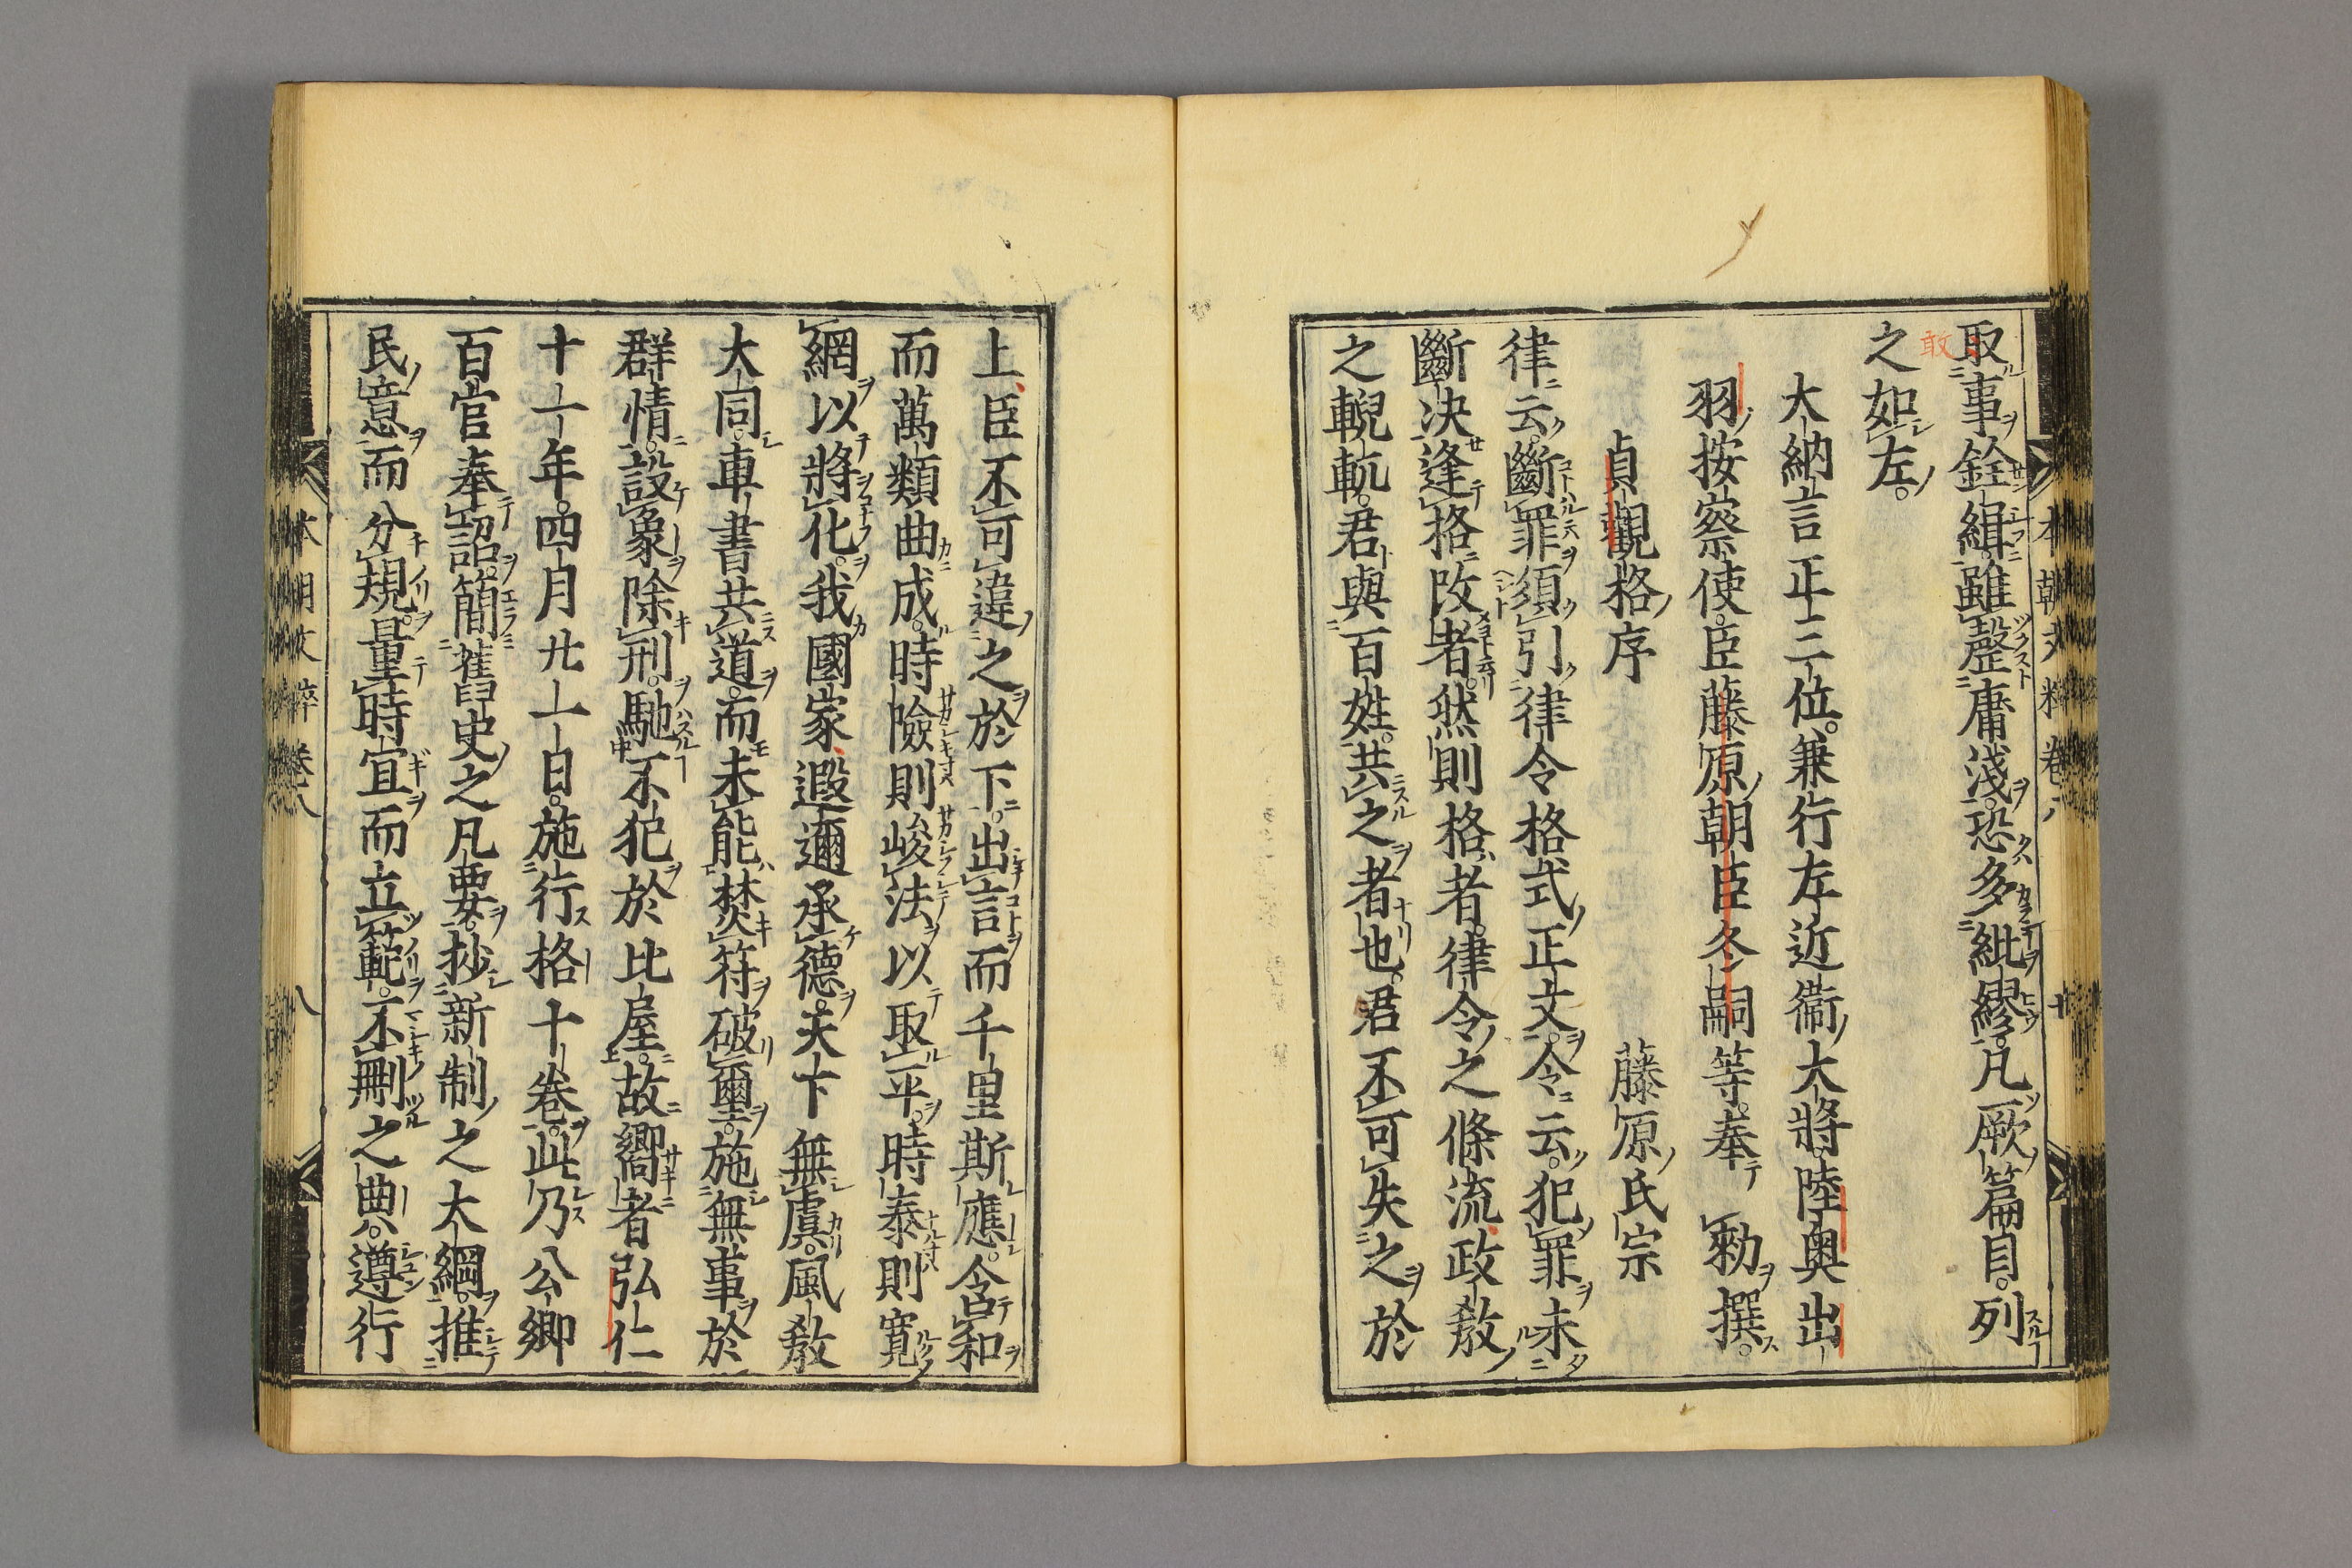 取事銓緝雖罄庸淺恐多紕繆凡厥篇目列
敢
之如左
大納言正三位兼行左近衞大將陸奥出
羽按察使臣藤原朝臣冬嗣等奉 勅撰
貞觀格序 藤原氏宗
律云斷罪須引律令格式正文令云犯罪未
斷决逢格改者然則格者律令之條流政教
之輗軏君與百姓共之者也君不可失之於
上臣不可違之於下出言而千里斯應含和
而萬類曲成時險則峻法以取平時泰則寬
網以將化我國家遐邇承德天下無虞風教
大同車書共道而未能焚符破璽施無事於
群情設象除刑馳不犯於比屋故嚮者弘仁
十一年四月廿一日施行格十卷此乃公卿
百官奉詔簡舊史之凡要抄新制之大綱推
民意而分規量時宜而立範不刪之典遵行
本朝文粹卷八 八